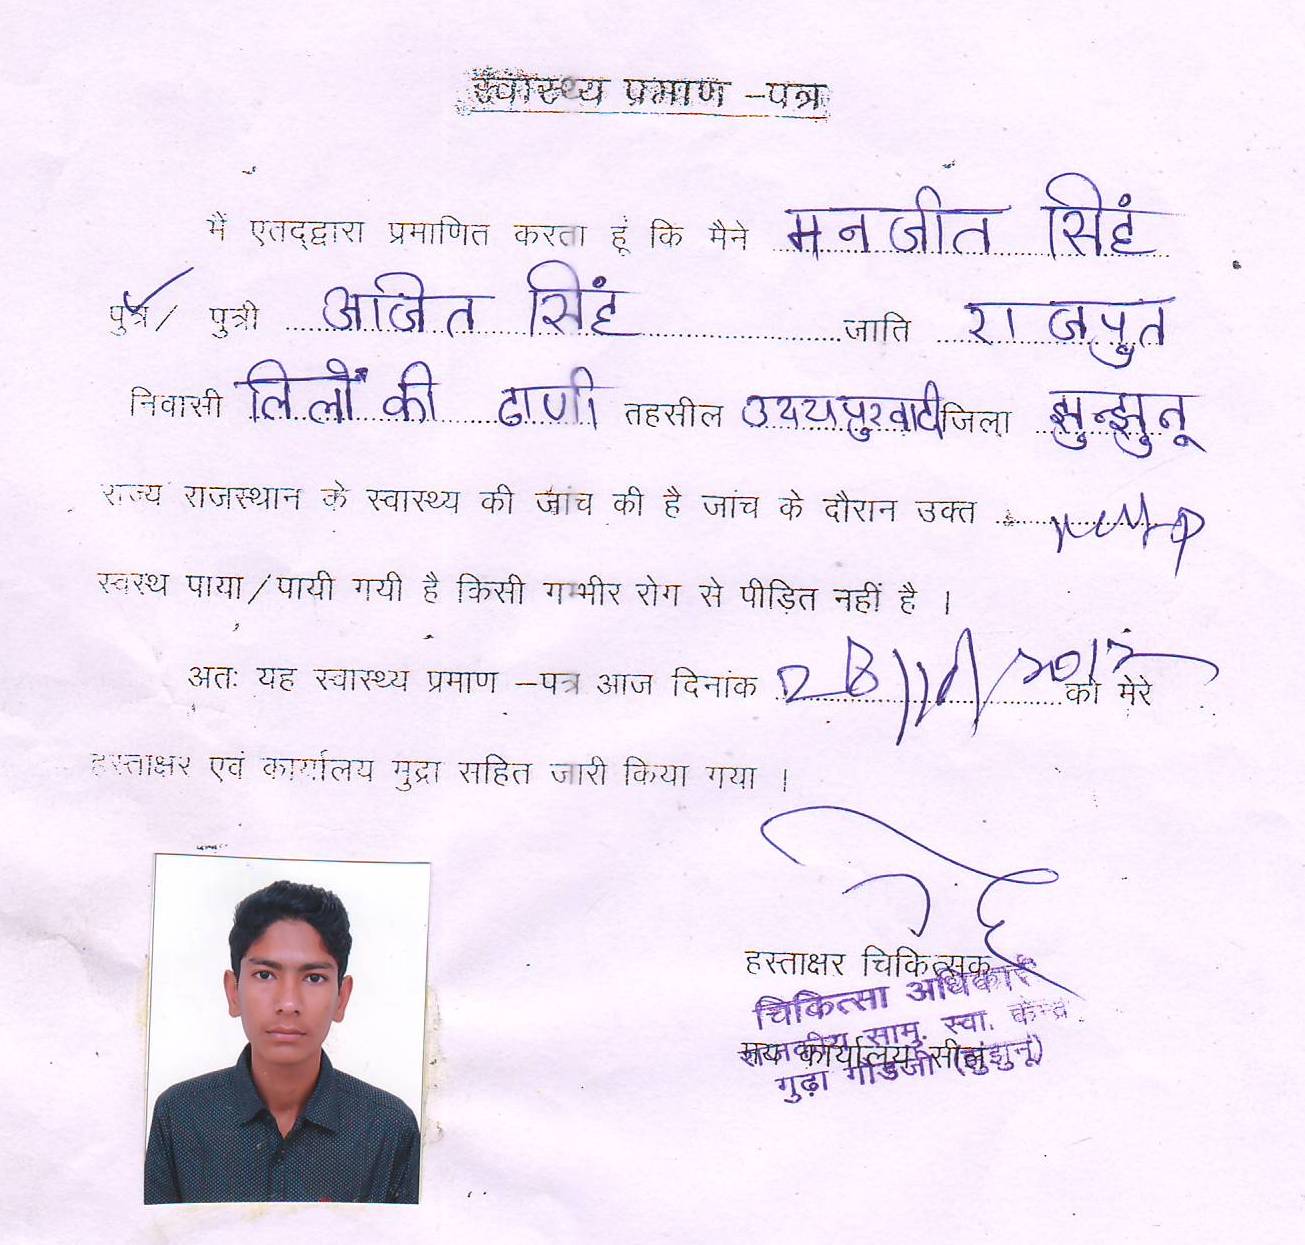 स्वास्थ्य प्रमाण –पत्र
मैं एतद्द्वारा प्रमाणित करता हूं कि मैने मनजीत सिंहं
पुत्र / पुत्री अजित सिंहं जाति राजपुत
निवासी लिलों की ढाणी तहसील उदयपुरवाटी जिला झुन्झुनू
राज्य राजस्थान के स्वास्थ्य की जांच की है जांच के दौरान उक्त
स्वस्थ पाया/पायी गयी है किसी गम्भीर रोग से पीड़ित नहीं है ।
अतः यह स्वास्थ्य प्रमाण –पत्र आज दिनांक को मेरे
हस्ताक्षर एवं कार्यालय मुद्रा सहित जारी किया गया ।
हस्ताक्षर चिकित्सक
चिकित्सा अधिकारी
राजकीय सामु. स्वा. केन्द्र
मय कार्यालय सील
गुढ़ा गौडजी (झुंझुनूं)